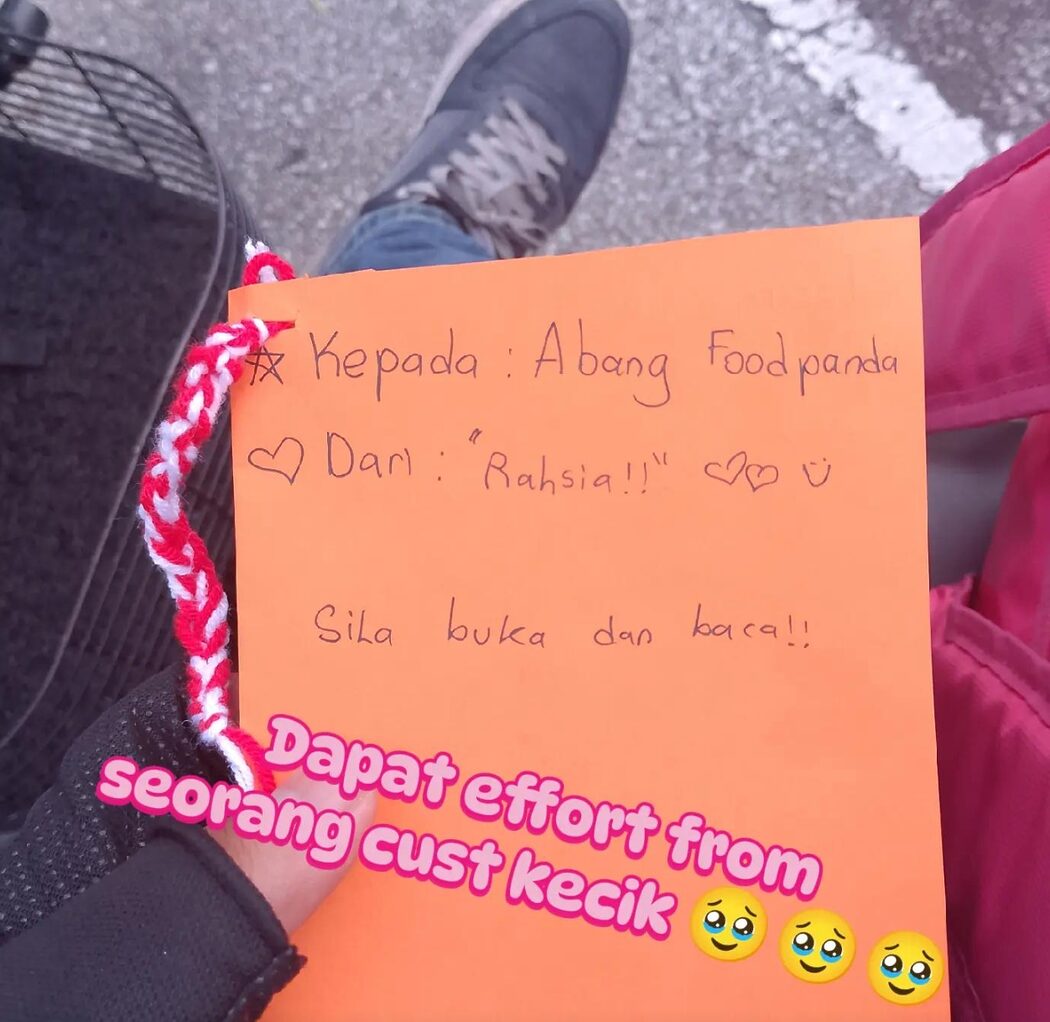 ☆ Kepada : Abang Foodpanda
♡ Dari : "Rahsia!!" ♡♡ ü
Sila buka dan baca!!
Dapat effort from
seorang cust kecik 🥹🥹🥹